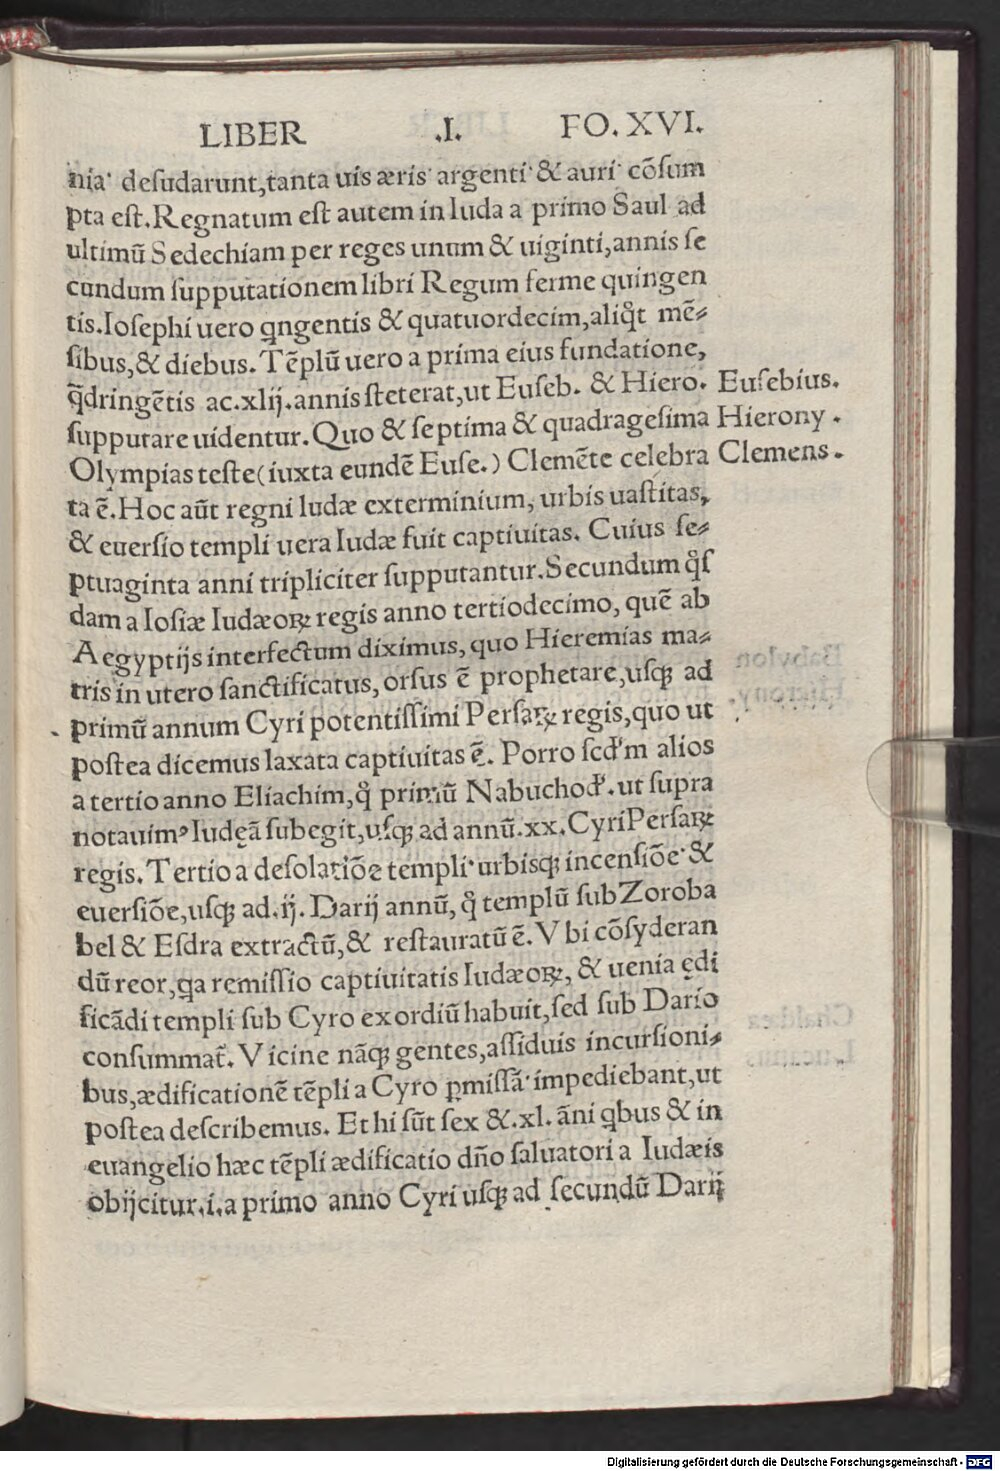 LIBER .I. FO. XVI.
nia· desudarunt,tanta uis æris· argenti· & auri· cõsum
pta est.Regnatum est autem in Iuda a primo Saul ad
ultimũ Sedechiam per reges unum & uiginti,annis se
cundum supputationem libri Regum ferme quingen
tis.Iosephi uero qngentis & quatuordecim,aliqͦt mẽ⸗
sibus,& diebus. Tẽplũ uero a prima eius fundatione,
q̃dringẽtis ac.xlij.annis steterat,ut Euseb. & Hiero. Eusebius.
supputare uidentur.Quo & septima & quadragesima Hierony.
Olympias teste(iuxta eundẽ Euse.) Clemẽte celebra Clemens.
ta ẽ.Hoc aũt regni Iudæ exterminium, urbis uastitas,
& euersio templi uera Iudæ fuit captiuitas. Cuius se⸗
ptuaginta anni tripliciter supputantur.Secundum qͦs
dam a Iosiæ Iudæoꝝ regis anno tertiodecimo, quẽ ab
Aegyptijs interfectum diximus, quo Hieremias ma⸗
tris in utero sanctificatus, orsus ẽ prophetare,usqꝫ ad
primũ annum Cyri potentissimi Persaꝝ regis,quo ut
postea dicemus laxata captiuitas ẽ. Porro scd'm alios
a tertio anno Eliachim,qͦ primũ Nabuchod'.ut supra
notauimꝰ Iudęã subegit,usqꝫ ad annũ.xx.Cyri Persaꝝ
regis.Tertio a desolatiõe templi·urbisqꝫ incensiõe·&
euersiõe,usqꝫ ad.ij.Darij annũ, qͦ templũ sub Zoroba
bel & Esdra extractũ,& restauratũ ẽ.Vbi cõsyderan
dũ reor,qa remissio captiuitatis Iudæoꝝ, & uenia ędi
ficãdi templi sub Cyro exordiũ habuit,sed sub Dario
consummat̃. Vicine nãqꝫ gentes,assiduis incursioni⸗
bus,ædificationẽ tẽpli a Cyro ꝓmissã·impediebant,ut
postea describemus. Et hi sũt sex &.xl. ãni qbus & in
euangelio hæc tẽpli ædificatio dño saluatori a Iudæis
obijcitur.i.a primo anno Cyri usqꝫ ad secundũ Darij
Digitalisierung gefördert durch die Deutsche Forschungsgemeinschaft - DFG